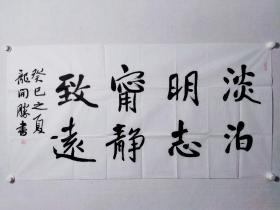 淡泊
明志
甯静
致遠
癸巳之夏
龍開勝书